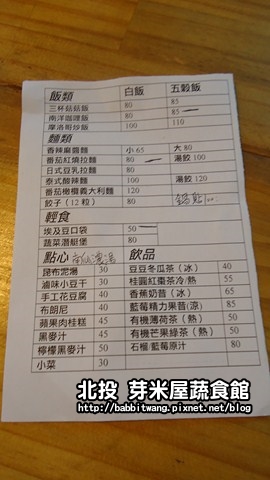 飯類 白飯 五穀飯
三杯菇菇飯 80 85
南洋咖哩飯 80 85
摩洛哥炒飯 100 110
麵類
香辣麻醬麵 小 65 大 80
番茄紅燒拉麵 80 湯餃 100
日式豆乳拉麵 80
泰式酸辣麵 100 湯餃 120
番茄橄欖義大利麵 120
餃子（12 粒） 80
輕食
埃及豆口袋 50
蔬菜潛艇堡 80
點心 飲品
昆布泥湯 30 豆豆冬瓜茶（冰） 40
滷味小豆干 30 桂圓紅棗茶冷/熱 55
手工花豆腐 40 香蕉奶昔（冰） 65
布朗尼 40 藍莓精力果昔(涼) 85
蘋果肉桂糕 45 有機薄荷茶（熱） 50
黑麥汁 45 有機芒果綠茶（熱） 50
檸檬黑麥汁 50 石榴/藍莓原汁 80
小菜 30
北投 芽米屋蔬食館
http://babbitwang.pixnet.net/blog